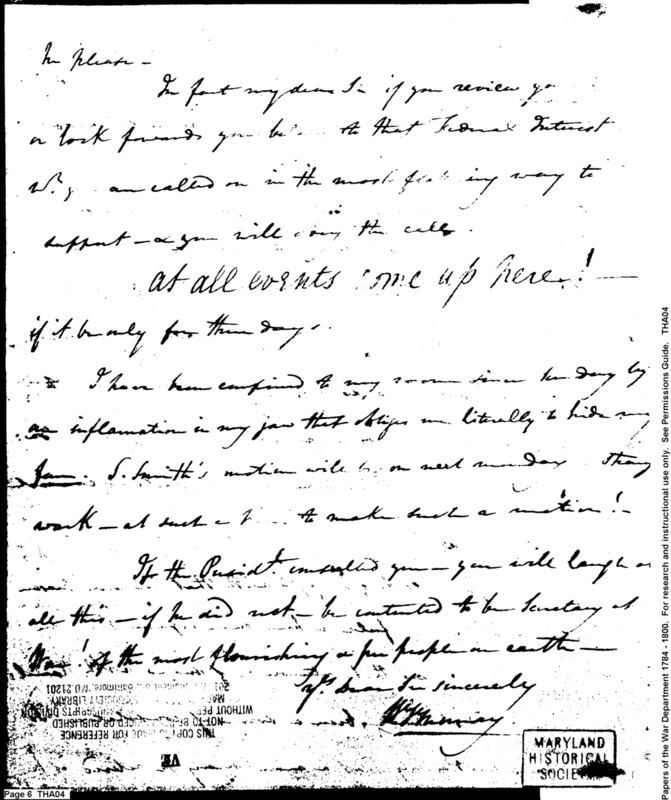 me please –
In fact my dear Sir if you review yo
or look forwards you to that Federal Interest
are called on in the most ing way to
support – & you will the call.
at all events come up here! –
if it be only for three days.
I have been confined to my room since ten days by
an inflamation in my jaw that obliges me literally to hide my
Jaw. S. Smith's motion will be on next monday
work – at such a to make such a motion! –
If the Presidt. consulted you – you will laugh at
all this – if he did not – be contented to be Secretary at
War! of the most flourishing & free people on earth –
Yrs. Dear Sir sincerely
W V Murray
THIS COPY FOR REFERENCE
NOT TO BE OR PUBLISHED
WITHOUT PER
LIBRARY
MD 21201
MARYLAND
HISTORICAL
SOCIETY
Page 6 THA04
Papers of the War Department 1784 - 1800. For research and instructional use only. See Permissions Guide. THA04